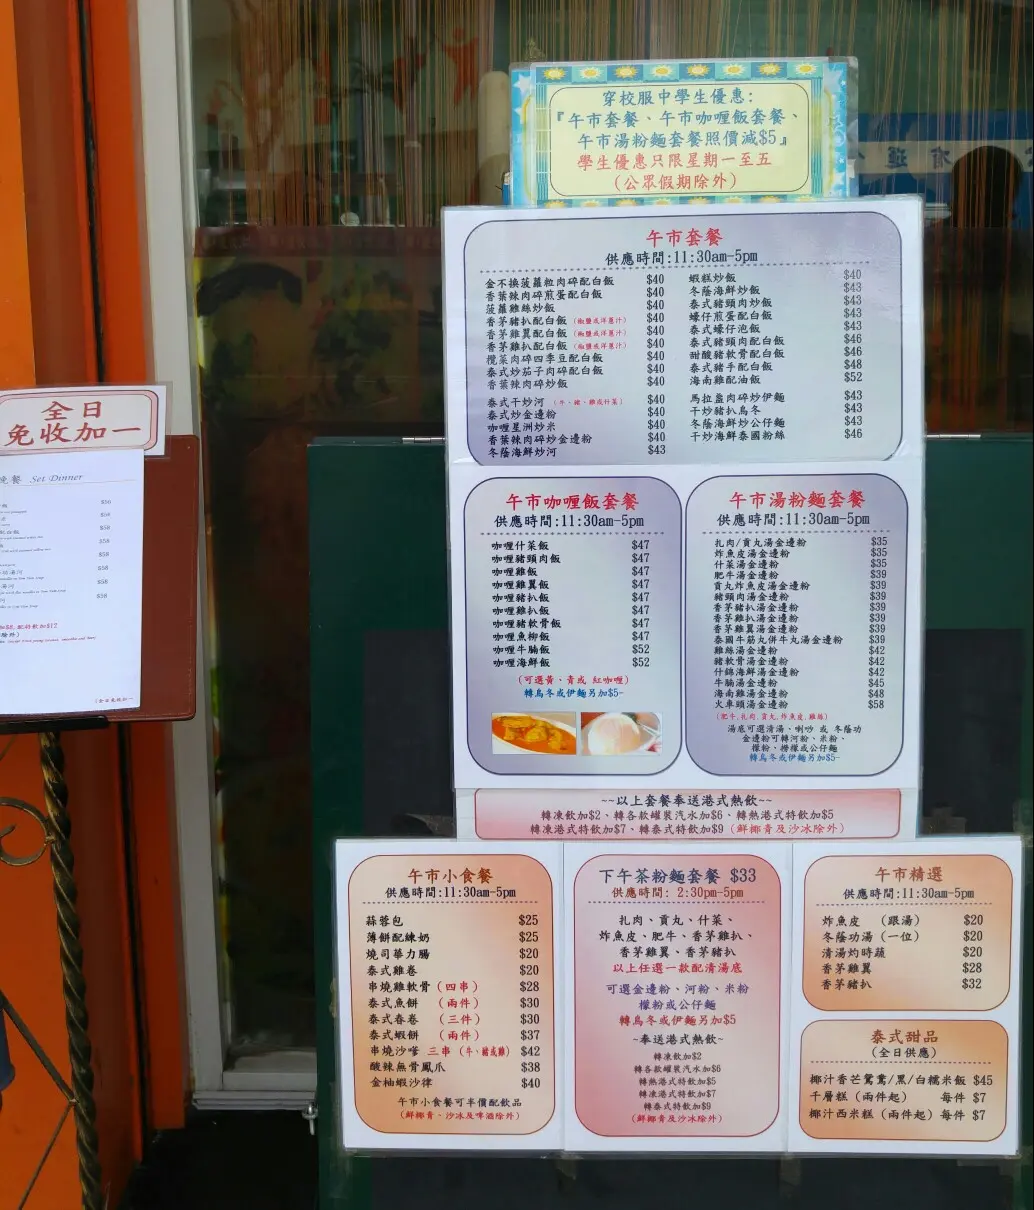 穿校服中學生優惠:
『午市套餐、午市咖喱飯套餐、
午市湯粉麵套餐照價減$5』
學生優惠只限星期一至五
(公眾假期除外)
午市套餐
供應時間:11:30am-5pm
金不換菠蘿粒肉碎配白飯 $40
香葉辣肉碎煎蛋配白飯 $40
菠蘿雞絲炒飯 $40
香茅豬扒配白飯 (椒鹽或洋蔥汁) $40
香茅雞翼配白飯 (椒鹽或洋蔥汁) $40
香茅雞扒配白飯 (椒鹽或洋蔥汁) $40
欖菜肉碎四季豆配白飯 $40
泰式炒茄子肉碎配白飯 $40
香葉辣肉碎炒飯 $40
泰式干炒河 (牛、豬、雞或什菜) $40
泰式炒金邊粉 $40
咖喱星洲炒米 $40
香葉辣肉碎炒金邊粉 $40
冬蔭海鮮炒河 $43
蝦糕炒飯 $40
冬蔭海鮮炒飯 $43
泰式豬頸肉炒飯 $43
蠔仔煎蛋配白飯 $43
泰式蠔仔泡飯 $43
泰式豬頸肉配白飯 $46
甜酸豬軟骨配白飯 $46
泰式豬手配白飯 $48
海南雞配油飯 $52
馬拉盞肉碎炒伊麵 $43
干炒豬扒烏冬 $43
冬蔭海鮮炒公仔麵 $43
干炒海鮮泰國粉絲 $46
午市咖喱飯套餐
供應時間:11:30am-5pm
咖喱什菜飯 $47
咖喱豬頸肉飯 $47
咖喱雞飯 $47
咖喱雞翼飯 $47
咖喱豬扒飯 $47
咖喱雞扒飯 $47
咖喱豬軟骨飯 $47
咖喱魚柳飯 $47
咖喱牛腩飯 $52
咖喱海鮮飯 $52
(可選黃、青或 紅咖喱)
轉烏冬或伊麵另加$5-
午市湯粉麵套餐
供應時間:11:30am-5pm
扎肉/貢丸湯金邊粉 $35
炸魚皮湯金邊粉 $35
什菜湯金邊粉 $35
肥牛湯金邊粉 $39
貢丸炸魚皮湯金邊粉 $39
豬頸肉湯金邊粉 $39
香茅豬扒湯金邊粉 $39
香茅雞扒湯金邊粉 $39
香茅雞翼湯金邊粉 $39
泰國牛筋丸併牛丸湯金邊粉 $39
雞絲湯金邊粉 $42
豬軟骨湯金邊粉 $42
什錦海鮮湯金邊粉 $42
牛腩湯金邊粉 $45
海南雞湯金邊粉 $48
火車頭湯金邊粉 $58
(肥牛,扎肉,貢丸,炸魚皮,雞絲)
湯底可選清湯、喇吵 或 冬蔭功
金邊粉可轉河粉、米粉、
檬粉、撈檬或公仔麵
轉烏冬或伊麵另加$5-
~~以上套餐奉送港式熱飲~~
轉凍飲加$2、轉各款罐裝汽水加$6、轉熱港式特飲加$5
轉凍港式特飲加$7、轉泰式特飲加$9 (鮮椰青及沙冰除外)
午市小食餐
供應時間:11:30am-5pm
蒜蓉包 $25
薄餅配練奶 $25
燒司華力腸 $20
泰式雞卷 $20
串燒雞軟骨 (四串) $28
泰式魚餅 (兩件) $30
泰式春卷 (三件) $30
泰式蝦餅 (兩件) $37
串燒沙嗲 三串 (牛、豬或雞) $42
酸辣無骨鳳爪 $38
金柚蝦沙律 $40
午市小食餐可半價配飲品
(鮮椰青、沙冰及啤酒除外)
下午茶粉麵套餐 $33
供應時間: 2:30pm-5pm
扎肉、貢丸、什菜、
炸魚皮、肥牛、香茅雞扒、
香茅雞翼、香茅豬扒
以上任選一款配清湯底
可選金邊粉、河粉、米粉
檬粉或公仔麵
轉烏冬或伊麵另加$5
~奉送港式熱飲~
轉凍飲加$2
轉各款罐裝汽水加$6
轉熱港式特飲加$5
轉凍港式特飲加$7
轉泰式特飲加$9
(鮮椰青及沙冰除外)
午市精選
供應時間:11:30am-5pm
炸魚皮 (跟湯) $20
冬蔭功湯 (一位) $20
清湯灼時蔬 $20
香茅雞翼 $28
香茅豬扒 $32
泰式甜品
(全日供應)
椰汁香芒鴛鴦/黑/白糯米飯 $45
千層糕 (兩件起) 每件 $7
椰汁西米糕 (兩件起) 每件 $7
全日
免收加一
晚餐 Set Dinner